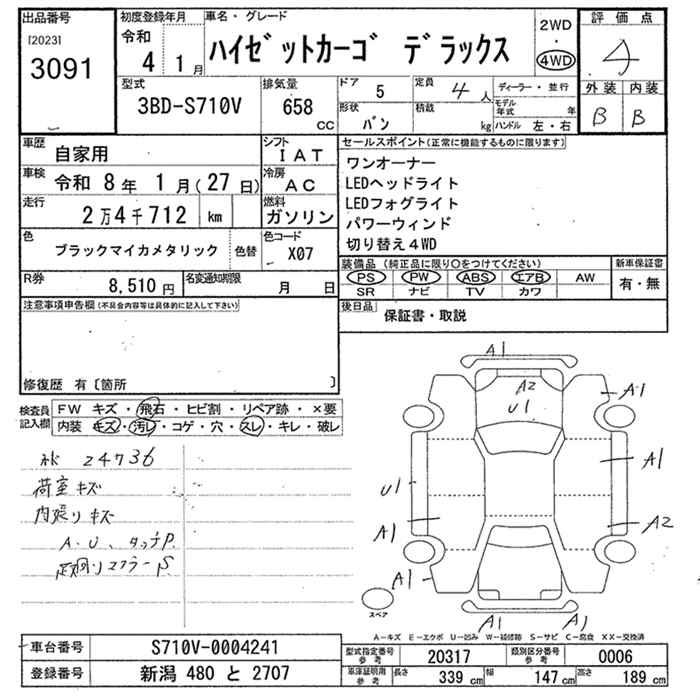 出品番号
[2023]
3091
初度登録年月
令和
4 1月
車名・グレード
ハイゼットカーゴ デラックス
2WD
・
4WD
評価点
4
外装 内装
B B
型式
3BD-S710V
排気量
658
cc
ドア 5
定員 4人
ディーラー・並行
形状 バン
積載 kg
モデル年式 年
ハンドル 左・右
車歴 自家用
シフト IAT
車検 令和 8年 1月(27日)
冷房 AC
走行 2万4千712 km
燃料 ガソリン
色 ブラックマイカメタリック
色替
色コード X07
R券 8,510円
名変通知期限 月 日
セールスポイント(正常に機能するものに限ります)
ワンオーナー
LEDヘッドライト
LEDフォグライト
パワーウィンド
切り替え4WD
装備品(純正品に限り○をつけてください)
新車保証書
PS PW ABS エアB AW
SR ナビ TV カワ
有・無
後日品 保証書・取説
注意事項申告欄(不具合内容等は具体的に記入して下さい)
修復歴 有〔箇所 〕
検査員記入欄
FW キズ・飛石・ヒビ割・リペア跡・×要
内装 キズ・汚レ・コゲ・穴・スレ・キレ・破レ
24736
荷室キズ
内張りキズ
A.U、タッチP.
A1
A2
U1
A1
A1
U1
A1
A2
A1
A1
A1
スペア
A−キズ E−エクボ U−凹み W−補修跡 S−サビ C−腐食 XX−交換済
車台番号 S710V-0004241
登録番号 新潟 480 と 2707
型式指定番号 参考 20317
類別区分番号 参考 0006
車庫証明用 参考
長さ 339 cm
幅 147 cm
高さ 189 cm